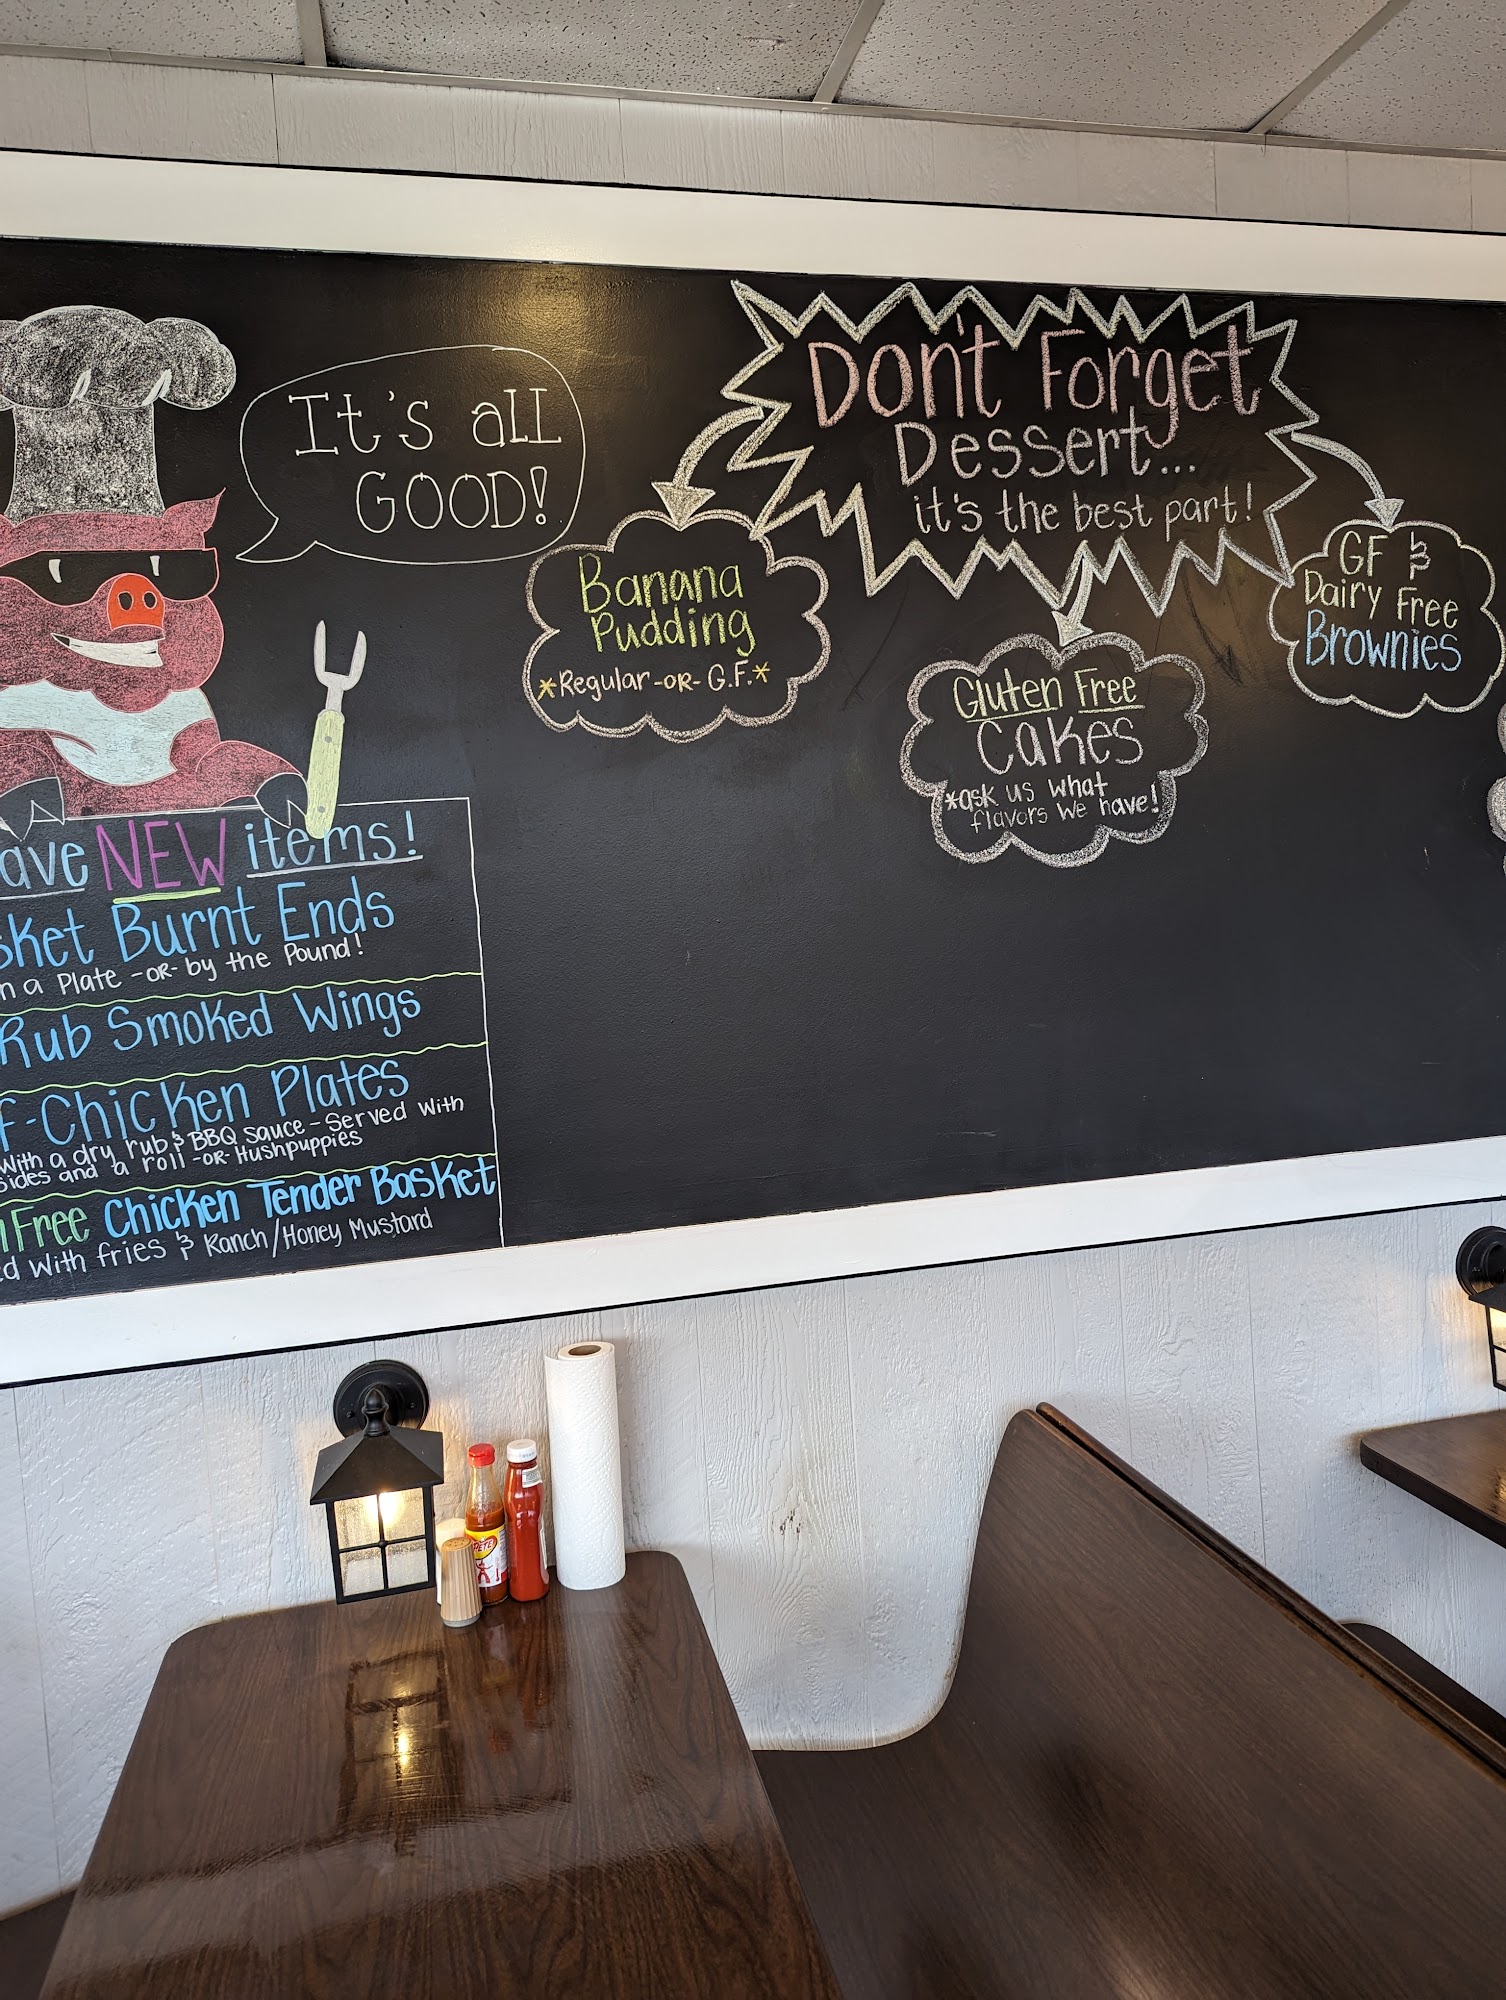 It's all
GOOD!
Don't Forget
Dessert...
it's the best part!
Banana
Pudding
*Regular -OR- G.F.*
Gluten Free
Cakes
*ask us what
flavors we have!
GF &
Dairy Free
Brownies
NEW items!
Burnt Ends
a Plate -OR- by the Pound!
Rub Smoked Wings
-Chicken Plates
With a dry rub & BBQ Sauce - Served With
sides and a roll -OR- Hushpuppies
Free Chicken Tender Basket
With fries & Ranch/Honey Mustard
PETE